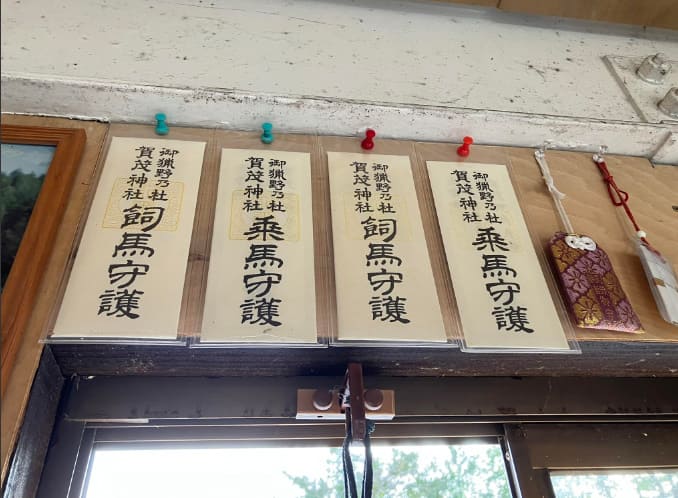 御猟野乃杜
賀茂神社
飼馬守護
御猟野乃杜
賀茂神社
乗馬守護
御猟野乃杜
賀茂神社
飼馬守護
御猟野乃杜
賀茂神社
乗馬守護